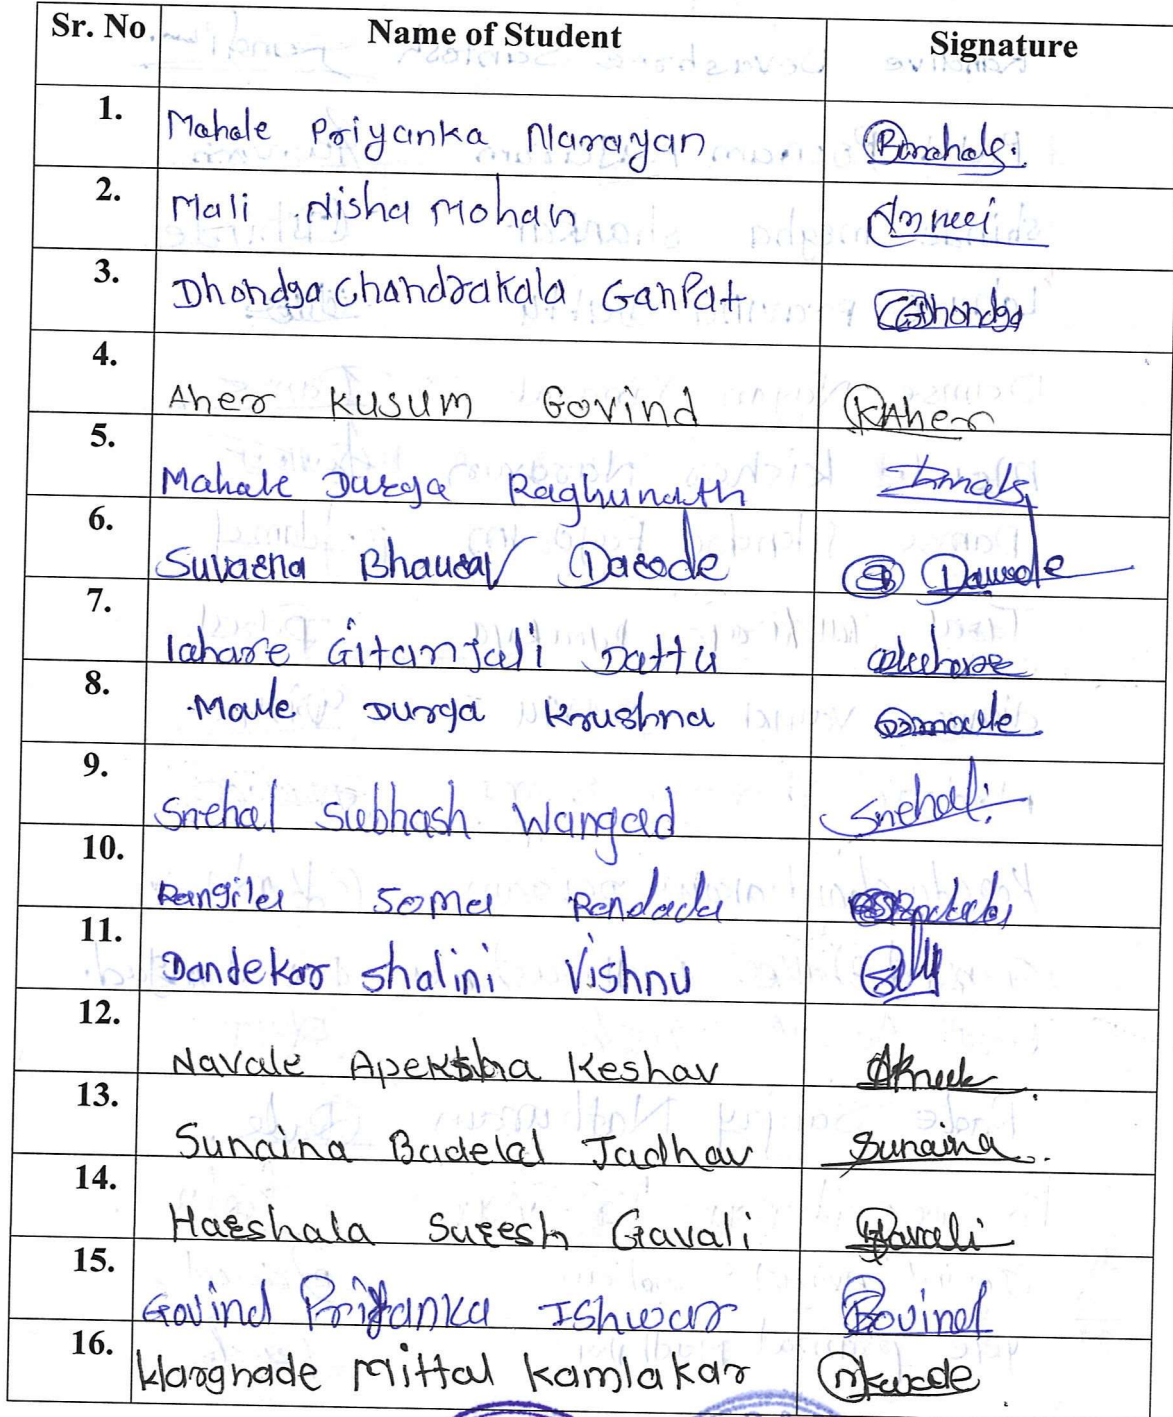 Sr. No Name of Student Signature
1. Mahale Priyanka Narayan
2. Mali Nisha Mohan
3. Dhondga Chandrakala Ganpat Dhondga
4. Aher Kusum Govind KAher
5. Mahale Durga Raghunath
6. Suvarna Bhausav Darode
7. lahare Gitanjali Dattu
8. Maule Durga Krushna Dmaule
9. Snehal Subhash Wangad Snehal
10. Rangila Soma Randada
11. Dandekar Shalini Vishnu
12. Navale Apeksha Keshav
13. Sunaina Badelal Jadhav Sunaina
14. Harshala Suresh Gavali HGavali
15. Govind Priyanka Ishwar PGovind
16. Warghade Mittal Kamlakar